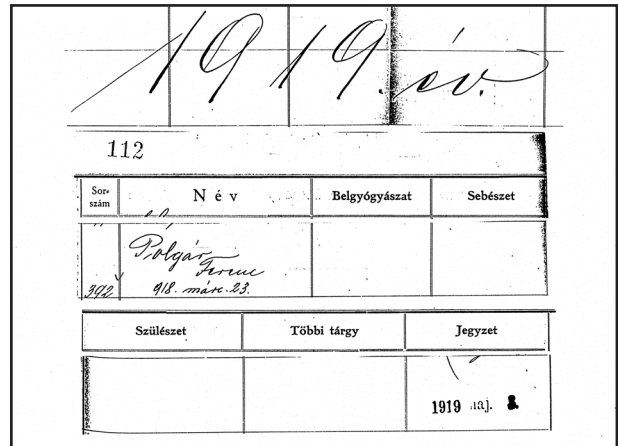 1919. év.
112
Sor-
szám
Név
Belgyógyászat
Sebészet
392
Polgár
Ferenc
918. márc. 23.
Szülészet
Többi tárgy
Jegyzet
1919 maj. 8.